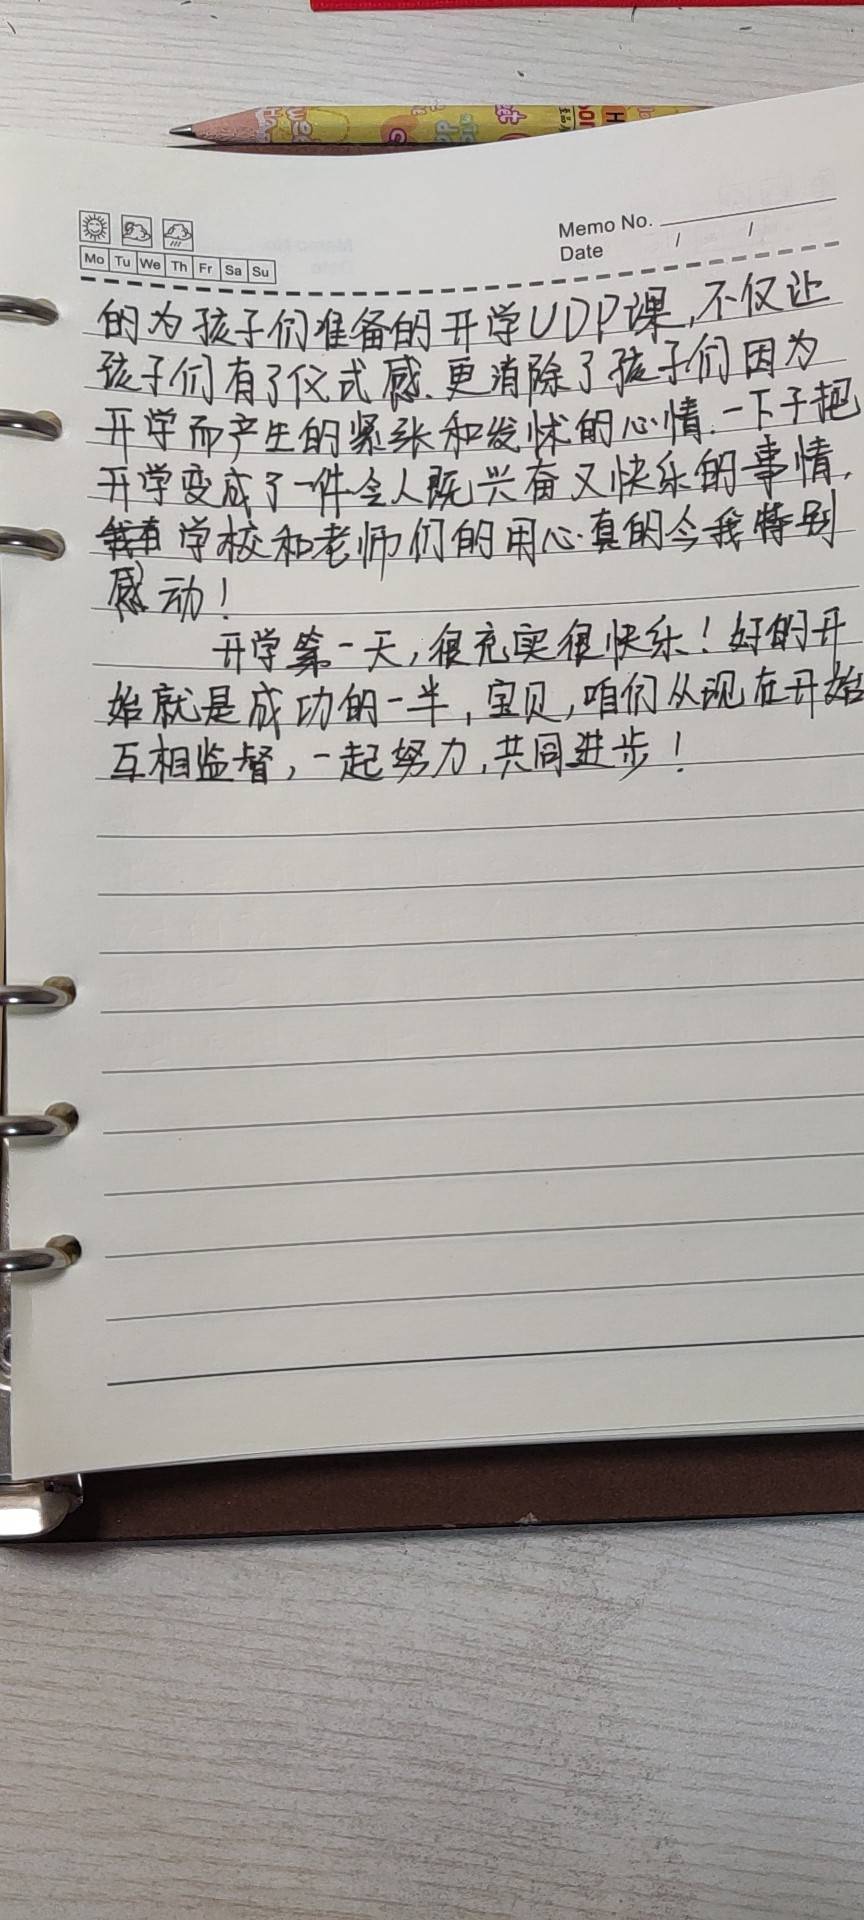 Memo No.
Date / /
Mo Tu We Th Fr Sa Su
的为孩子们准备的开学UDP课,不仅让
孩子们有了仪式感.更消除了孩子们因为
开学而产生的紧张和发怵的心情.一下子把
开学变成了一件令人既兴奋又快乐的事情,
学校和老师们的用心.真的令我特别
感动!
开学第一天,很充实很快乐!好的开
始就是成功的一半,宝贝,咱们从现在开始
互相监督,一起努力,共同进步!